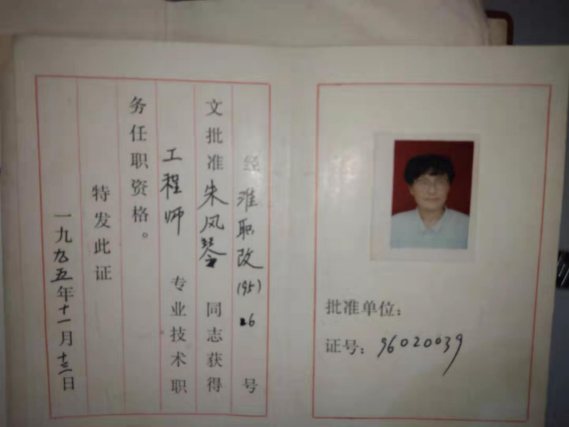 经淮职改(95)26号
文批准朱风琴同志获得
工程师专业技术职
务任职资格。
特发此证
一九九五年十一月十三日
批准单位:
证号:96020039